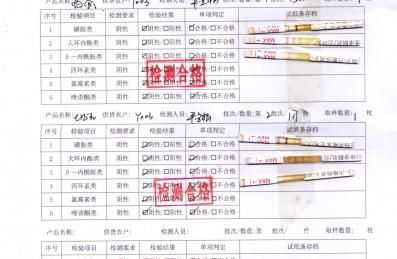 序号 检验项目 检测要求 检验结果 单项判定 试纸条存档
1 磺胺类 阴性 ☑阴性/☐阳性 ☑合格/☐不合格
2 大环内酯类 阴性 ☑阴性/☐阳性 ☑合格/☐不合格
3 β-内酰胺类 阴性 ☑阴性/☐阳性 ☑合格/☐不合格
4 四环素类 阴性 ☑阴性/☐阳性 ☑合格/☐不合格
5 氯霉素类 阴性 ☑阴性/☐阳性 ☑合格/☐不合格
6 喹诺酮类 阴性 ☑阴性/☐阳性 ☑合格/☐不合格
检测合格
产品名称: 供货农户: 检测人员: 批次/数量:第2批次/ 件 取样数量:1 枚
序号 检验项目 检测要求 检验结果 单项判定 试纸条存档
1 磺胺类 阴性 ☑阴性/☐阳性 ☑合格/☐不合格
2 大环内酯类 阴性 ☑阴性/☐阳性 ☑合格/☐不合格
3 β-内酰胺类 阴性 ☑阴性/☐阳性 ☑合格/☐不合格
4 四环素类 阴性 ☑阴性/☐阳性 ☑合格/☐不合格
5 氯霉素类 阴性 ☑阴性/☐阳性 ☑合格/☐不合格
6 喹诺酮类 阴性 ☑阴性/☐阳性 ☑合格/☐不合格
检测合格
产品名称: 供货农户: 检测人员: 批次/数量:第 批次/ 件 取样数量: 枚
序号 检验项目 检测要求 检验结果 单项判定 试纸条存档